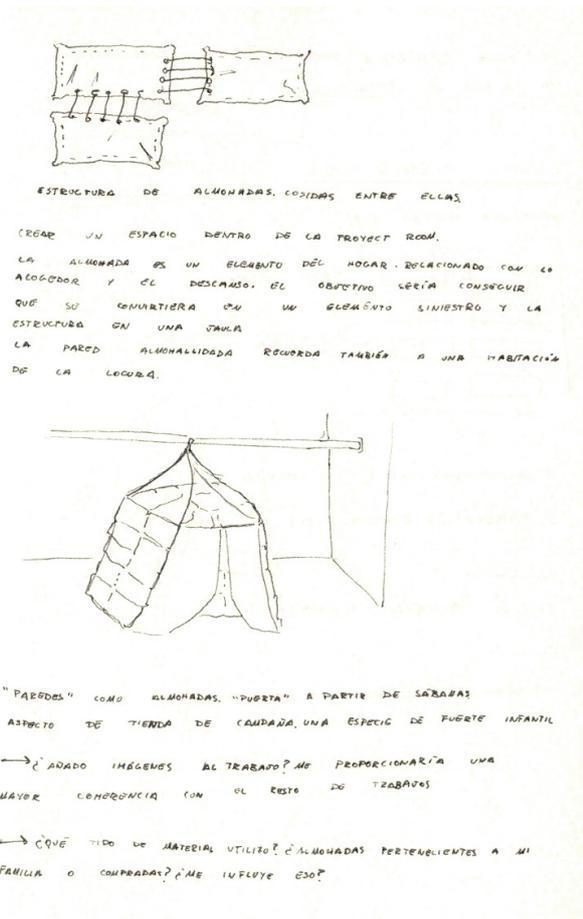 ESTRUCTURA DE ALMOHADAS. COSIDAS ENTRE ELLAS.
CREAR UN ESPACIO DENTRO DE LA PROYECT ROOM.
LA ALMOHADA ES UN ELEMENTO DEL HOGAR. RELACIONADO CON LO
ACOGEDOR Y EL DESCANSO. EL OBJETIVO SERÍA CONSEGUIR
QUE SE CONVIRTIERA EN UN ELEMENTO SINIESTRO Y LA
ESTRUCTURA EN UNA JAULA
LA PARED ALMOHALLIDADA RECUERDA TAMBIÉN A UNA HABITACIÓN
DE LA LOCURA.
"PAREDES" COMO ALMOHADAS. "PUERTA" A PARTIR DE SÁBANAS
ASPECTO DE TIENDA DE CAMPAÑA. UNA ESPECIE DE FUERTE INFANTIL
→ ¿AÑADO IMÁGENES AL TRABAJO? ME PROPORCIONARÍA UNA
MAYOR COHERENCIA CON EL RESTO DE TRABAJOS
→ ¿QUÉ TIPO DE MATERIAL UTILIZO? ¿ALMOHADAS PERTENECIENTES A MI
FAMILIA O COMPRADAS? ¿ME INFLUYE ESO?